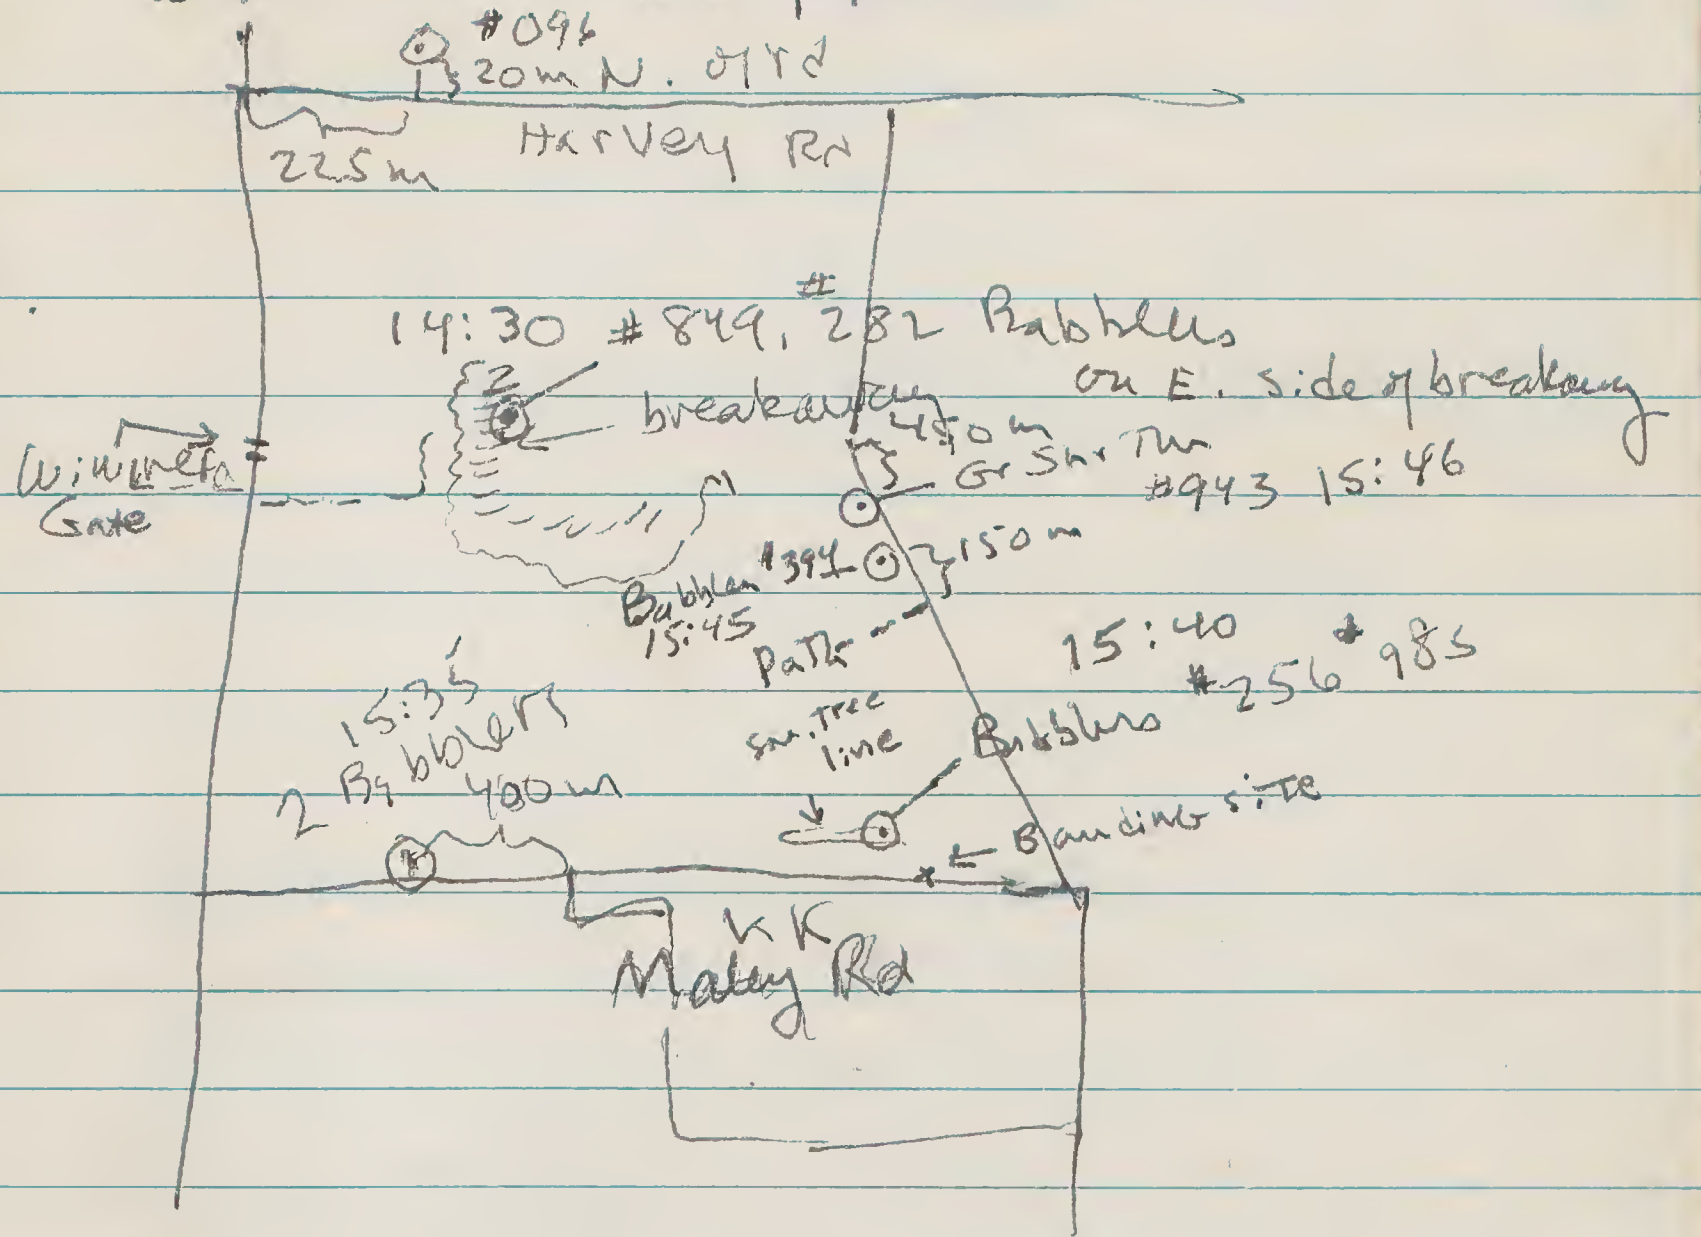 #096
20m N. of rd
Harvey Rd
225m
14:30 #849, #282 Babblers
on E. side of breakaway
breakaway
450m
Gr Shr Thr
#943 15:46
Gate
150m
Babbler #394
15:45
Path
15:40
#256 #985
Babblers
sm. tree
line
15:35
2 Babblers
400m
Banding site
KK
Rd